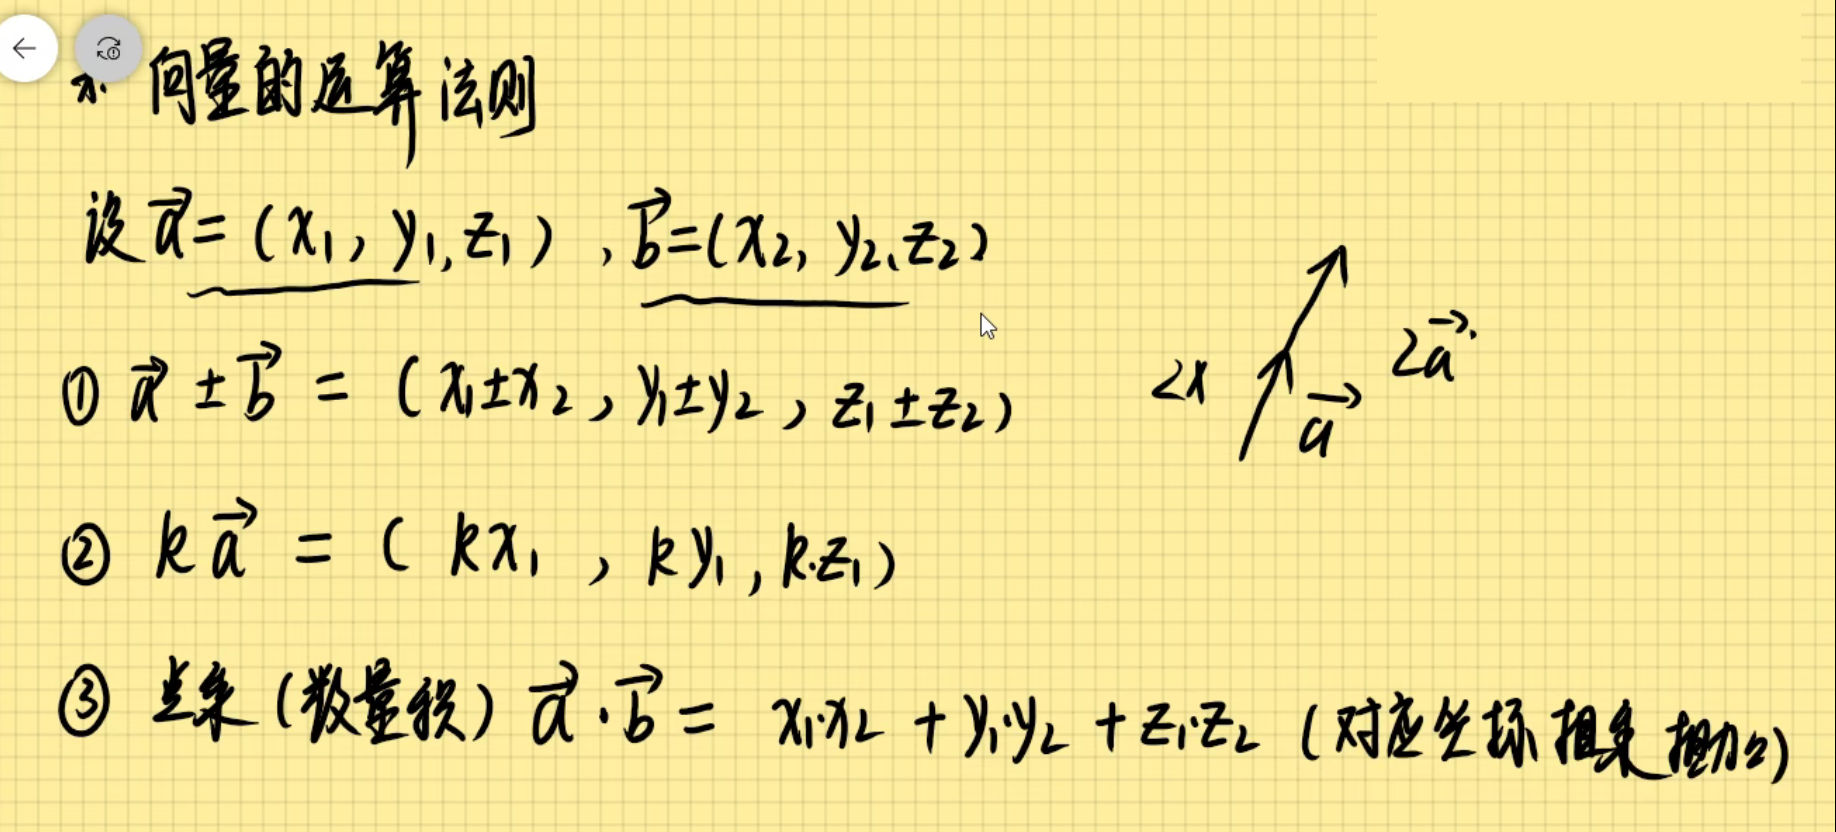 ※ 向量的运算法则
设 a⃗ = (x₁, y₁, z₁), b⃗ = (x₂, y₂, z₂)
① a⃗ ± b⃗ = (x₁±x₂, y₁±y₂, z₁±z₂)
2x
a⃗
2a⃗
② k a⃗ = (kx₁, ky₁, k·z₁)
③ 点乘(数量积) a⃗·b⃗ = x₁·x₂ + y₁·y₂ + z₁·z₂ (对应坐标相乘相加)